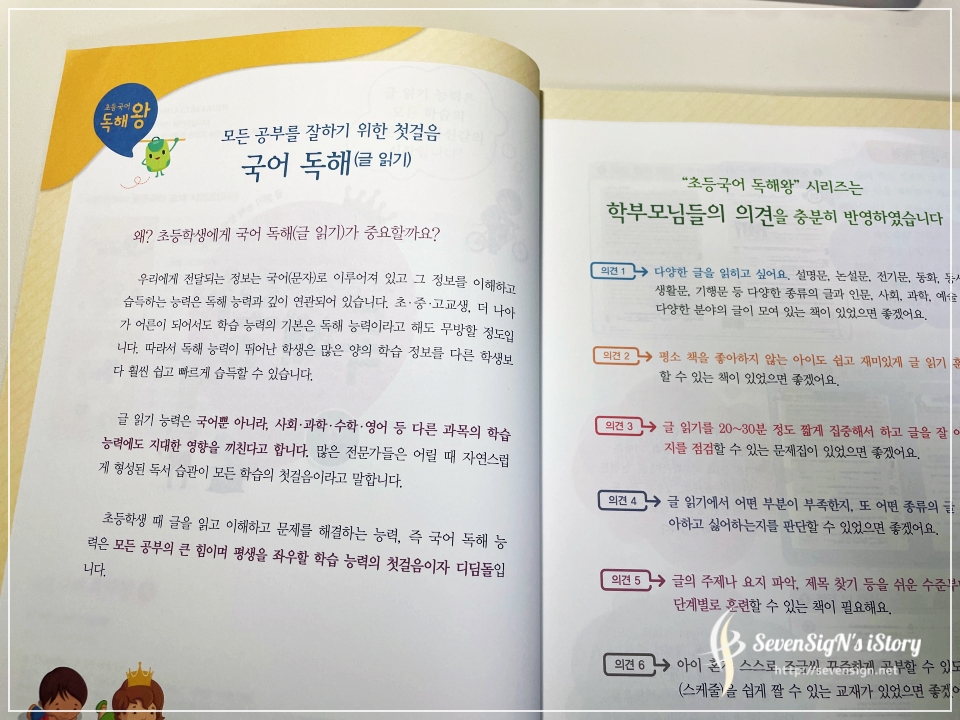 초등국어
독해왕
모든 공부를 잘하기 위한 첫걸음
국어 독해(글 읽기)
왜? 초등학생에게 국어 독해(글 읽기)가 중요할까요?
우리에게 전달되는 정보는 국어(문자)로 이루어져 있고 그 정보를 이해하고
습득하는 능력은 독해 능력과 깊이 연관되어 있습니다. 초·중·고교생, 더 나아
가 어른이 되어서도 학습 능력의 기본은 독해 능력이라고 해도 무방할 정도입
니다. 따라서 독해 능력이 뛰어난 학생은 많은 양의 학습 정보를 다른 학생보
다 훨씬 쉽고 빠르게 습득할 수 있습니다.
글 읽기 능력은 국어뿐 아니라, 사회·과학·수학·영어 등 다른 과목의 학습
능력에도 지대한 영향을 끼친다고 합니다. 많은 전문가들은 어릴 때 자연스럽
게 형성된 독서 습관이 모든 학습의 첫걸음이라고 말합니다.
초등학생 때 글을 읽고 이해하고 문제를 해결하는 능력, 즉 국어 독해 능
력은 모든 공부의 큰 힘이며 평생을 좌우할 학습 능력의 첫걸음이자 디딤돌입
니다.
"초등국어 독해왕" 시리즈는
학부모님들의 의견을 충분히 반영하였습니다
의견 1 다양한 글을 읽히고 싶어요. 설명문, 논설문, 전기문, 동화, 동시
생활문, 기행문 등 다양한 종류의 글과 인문, 사회, 과학, 예술
다양한 분야의 글이 모여 있는 책이 있었으면 좋겠어요.
의견 2 평소 책을 좋아하지 않는 아이도 쉽고 재미있게 글 읽기
할 수 있는 책이 있었으면 좋겠어요.
의견 3 글 읽기를 20~30분 정도 짧게 집중해서 하고 글을 잘
지를 점검할 수 있는 문제집이 있었으면 좋겠어요.
의견 4 글 읽기에서 어떤 부분이 부족한지, 또 어떤 종류의 글
아하고 싫어하는지를 판단할 수 있었으면 좋겠어요.
의견 5 글의 주제나 요지 파악, 제목 찾기 등을 쉬운 수준부
단계별로 훈련할 수 있는 책이 필요해요.
의견 6 아이 혼자 스스로 조금씩 꾸준하게 공부할 수 있
(스케줄)을 쉽게 짤 수 있는 교재가 있었으면 좋겠
SevenSigN's iStory
http://sevensign.net